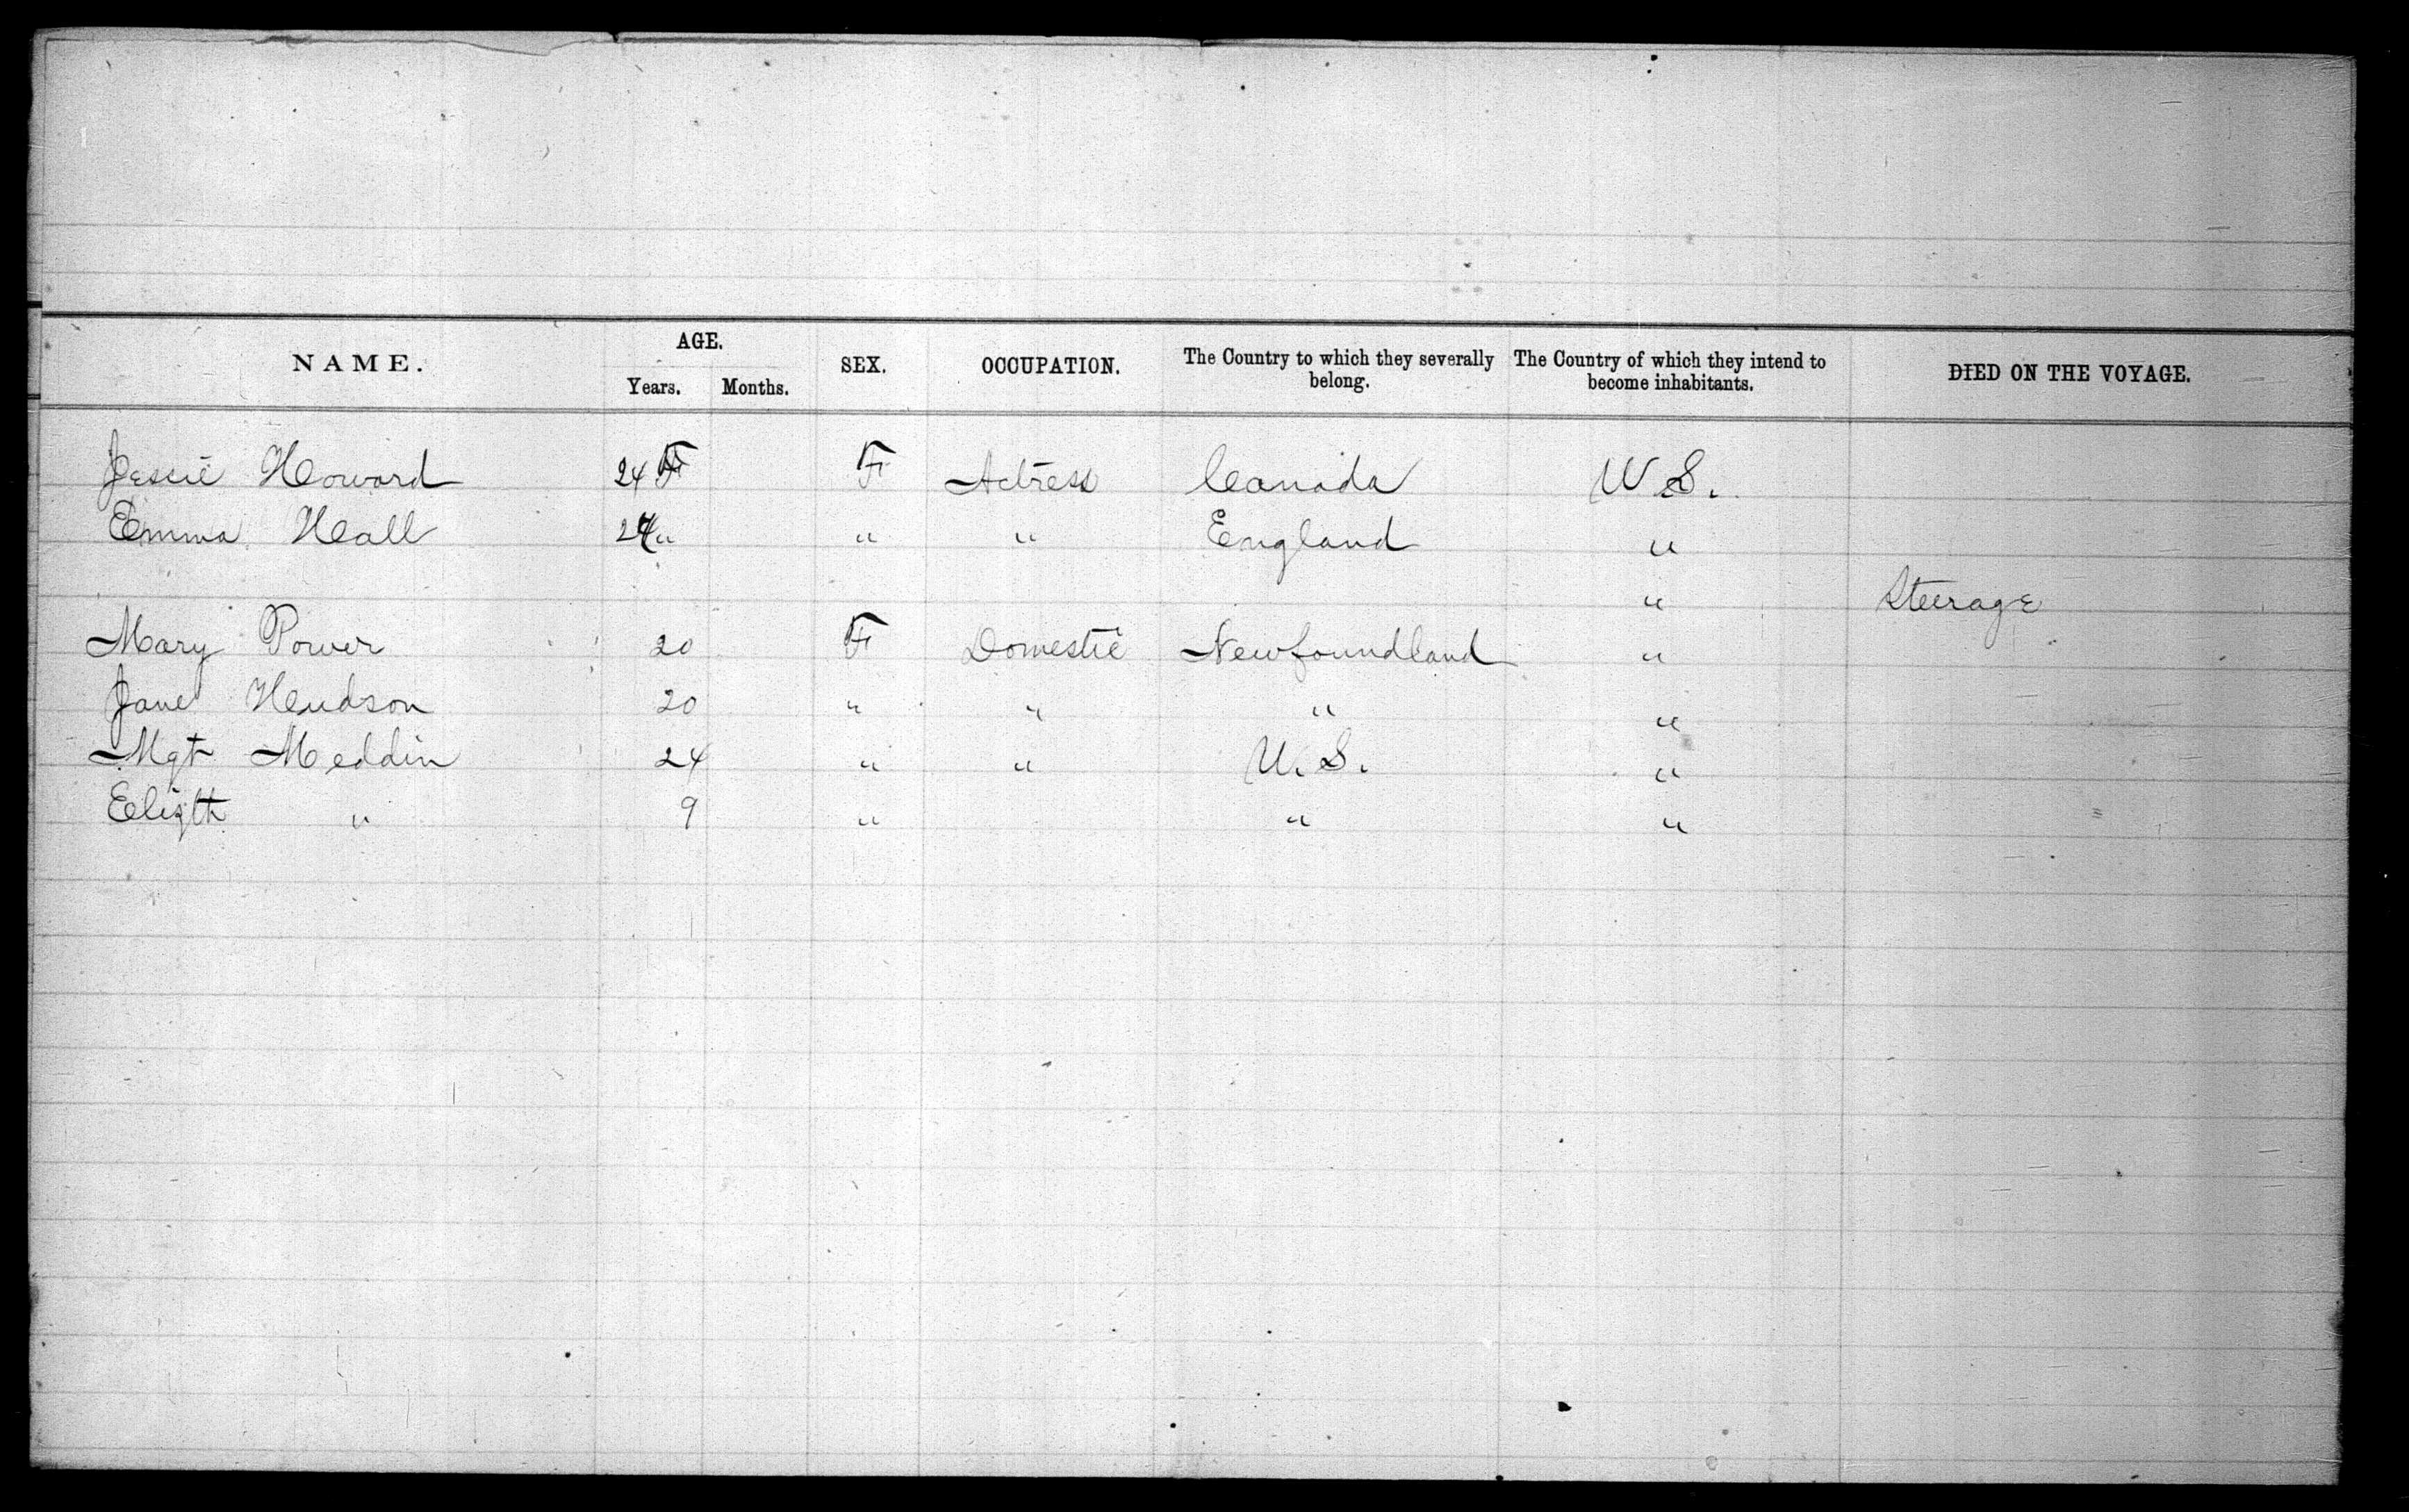 NAME. AGE. Years. Months. SEX. OCCUPATION. The Country to which they severally belong. The Country of which they intend to become inhabitants. DIED ON THE VOYAGE.
Jessie Howard 24 F F Actress Canada U S.
Emma Hall 24 " " " England "
" Steerage
Mary Power 20 F Domestic Newfoundland "
Jane Hudson 20 " " " "
Mgt Meddin 24 " " U. S. "
Elizth " 9 " " "